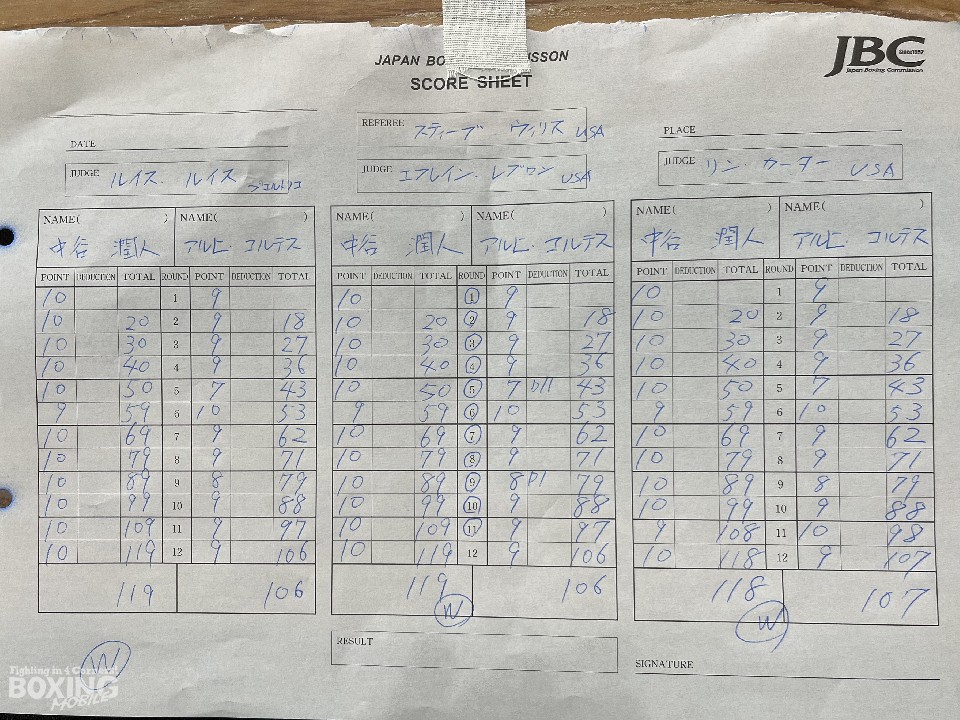 JBC
Since1952
Japan Boxing Commission
JAPAN BO SSON
SCORE SHEET
DATE
REFEREE スティーブ・ウィリス USA
PLACE
JUDGE ルイス・ルイス プエルトリコ
JUDGE エフレイン・レブロン USA
JUDGE リン・カーター USA
NAME( ) NAME( ) NAME( ) NAME( ) NAME( ) NAME( )
中谷 潤人 アルヒ・コルテス 中谷 潤人 アルヒ・コルテス 中谷 潤人 アルヒ・コルテス
POINT DEDUCTION TOTAL ROUND POINT DEDUCTION TOTAL POINT DEDUCTION TOTAL ROUND POINT DEDUCTION TOTAL POINT DEDUCTION TOTAL ROUND POINT DEDUCTION TOTAL
10 1 9 10 1 9 10 1 9
10 20 2 9 18 10 20 2 9 18 10 20 2 9 18
10 30 3 9 27 10 30 3 9 27 10 30 3 9 27
10 40 4 9 36 10 40 4 9 36 10 40 4 9 36
10 50 5 7 43 10 50 5 7 D/1 43 10 50 5 7 43
9 59 6 10 53 9 59 6 10 53 9 59 6 10 53
10 69 7 9 62 10 69 7 9 62 10 69 7 9 62
10 79 8 9 71 10 79 8 9 71 10 79 8 9 71
10 89 9 8 79 10 89 9 8 D1 79 10 89 9 8 79
10 99 10 9 88 10 99 10 9 88 10 99 10 9 88
10 109 11 9 97 10 109 11 9 97 9 108 11 10 98
10 119 12 9 106 10 119 12 9 106 10 118 12 9 107
119 106 119 106 118 107
W W W
RESULT
SIGNATURE
Fighting in 4 Corners!
BOXING
MOBILE